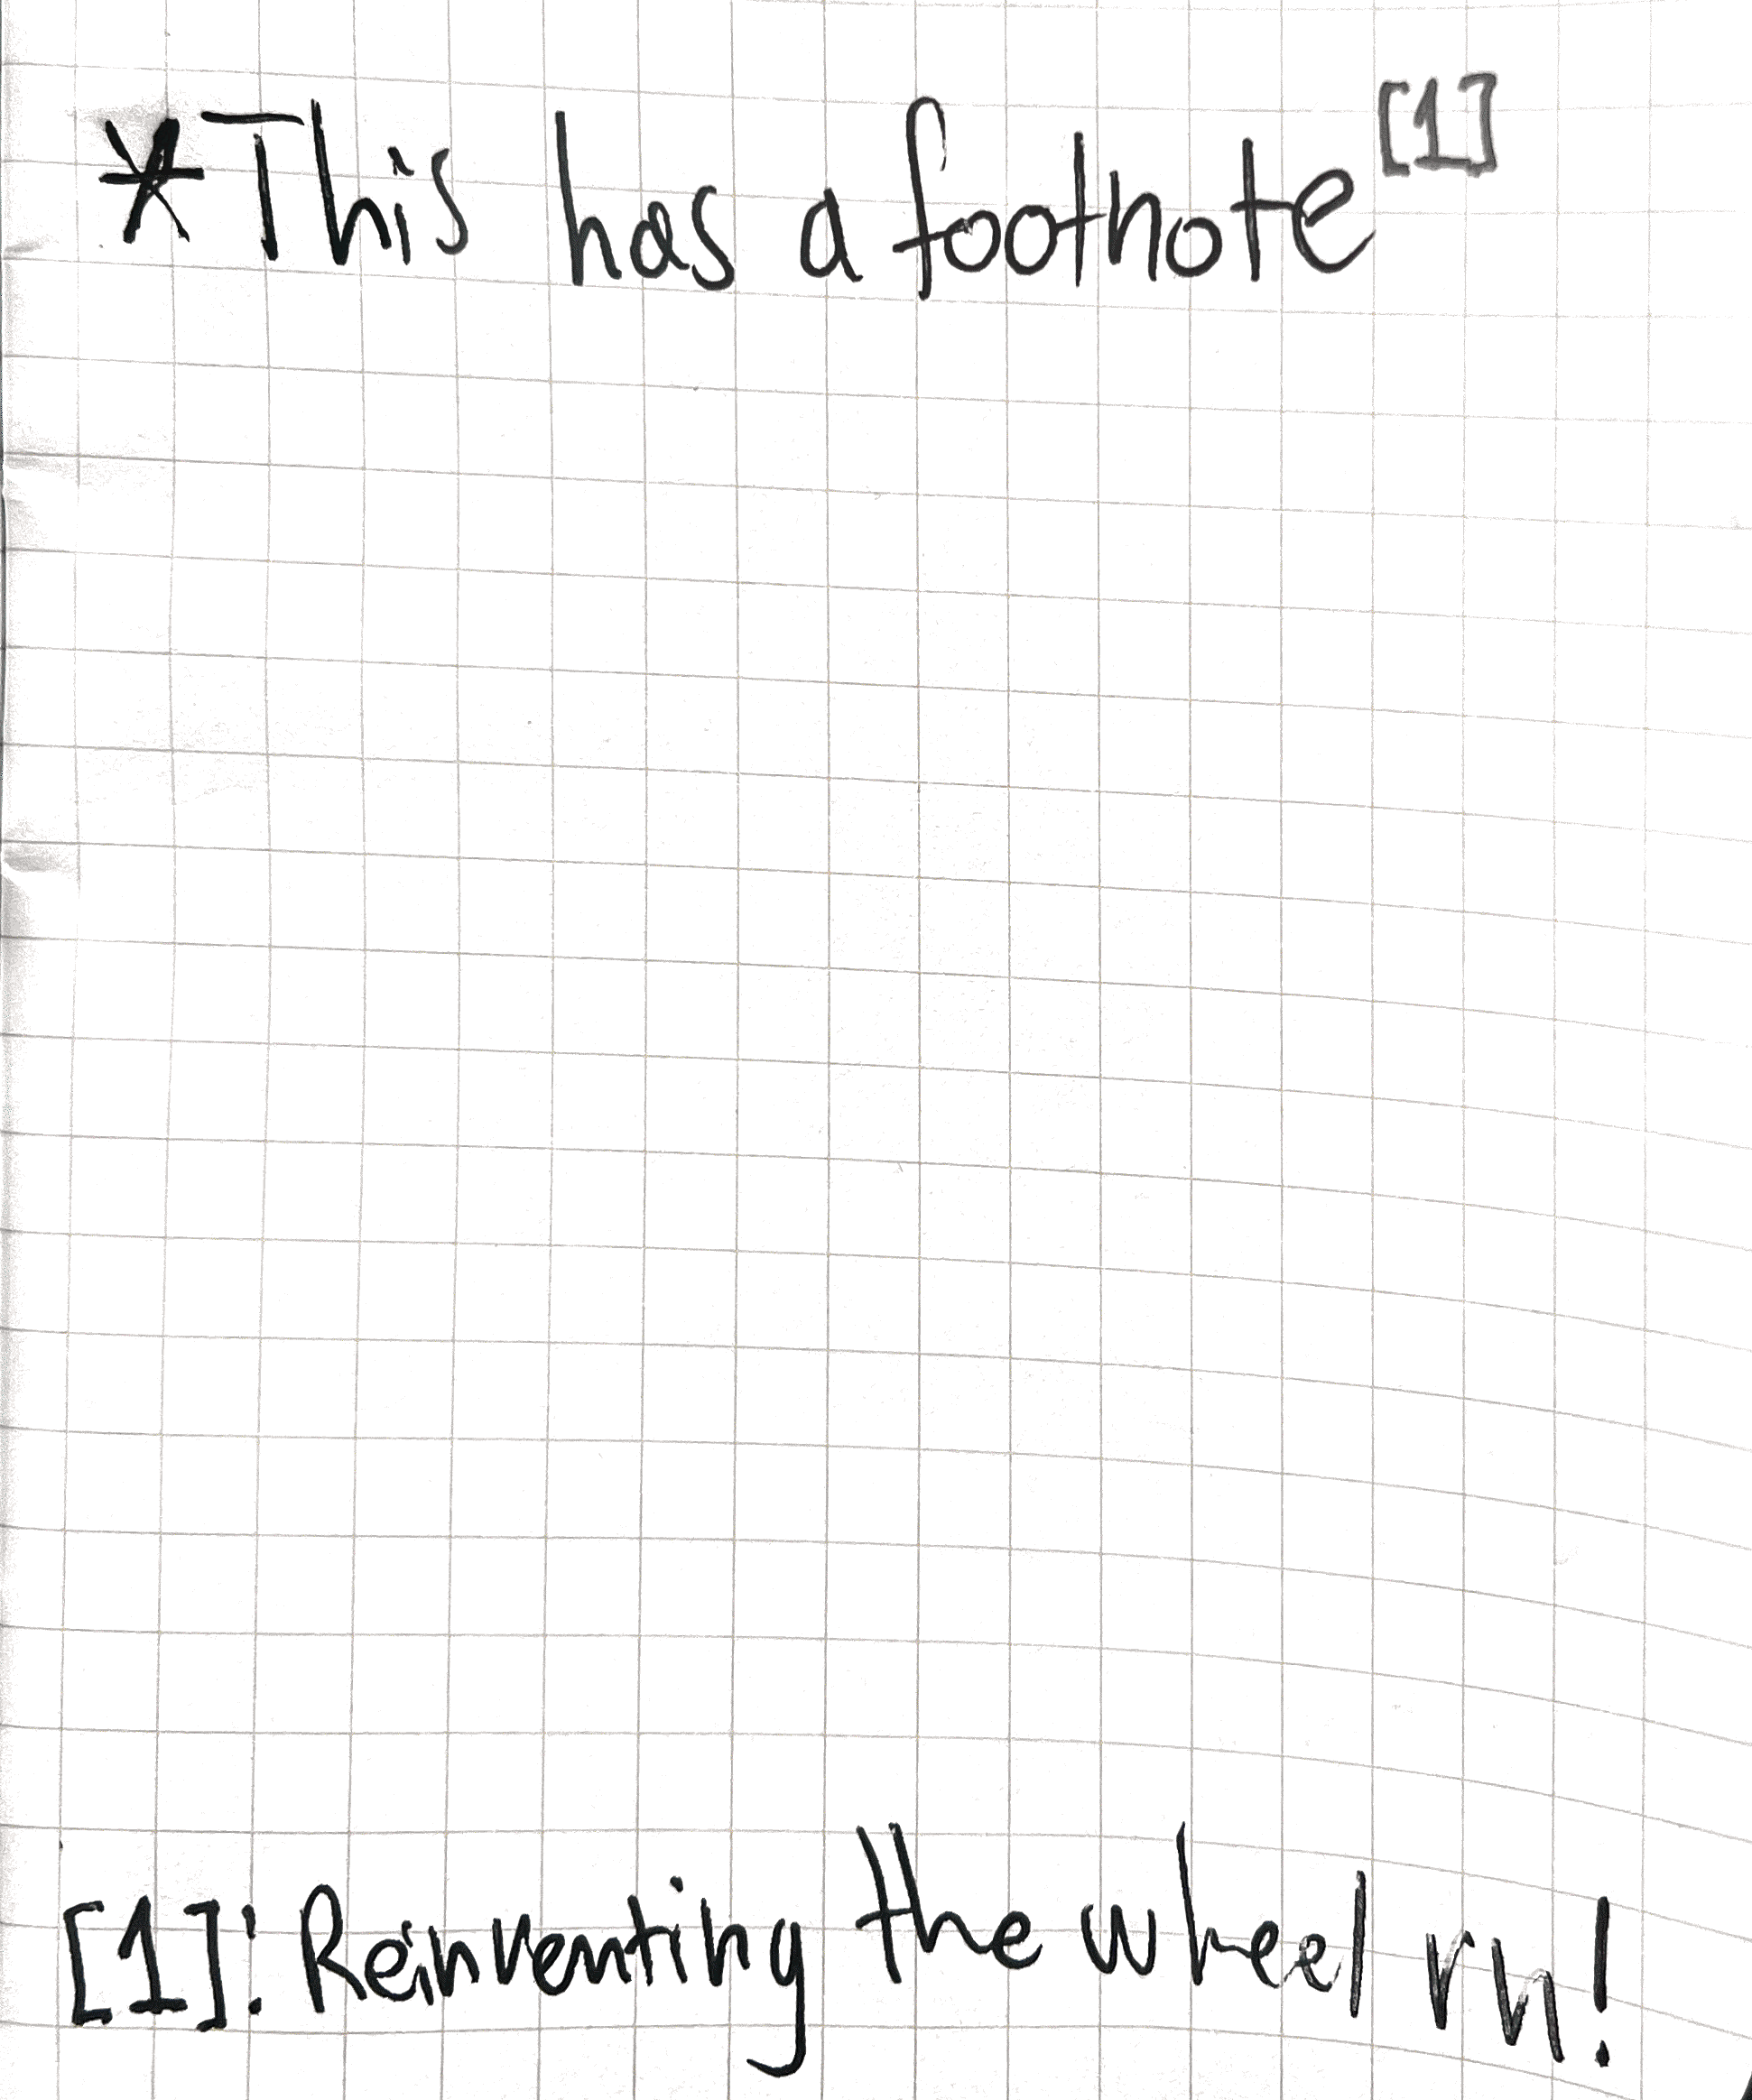 *This has a footnote[1]
[1]: Reinventing the wheel rn!